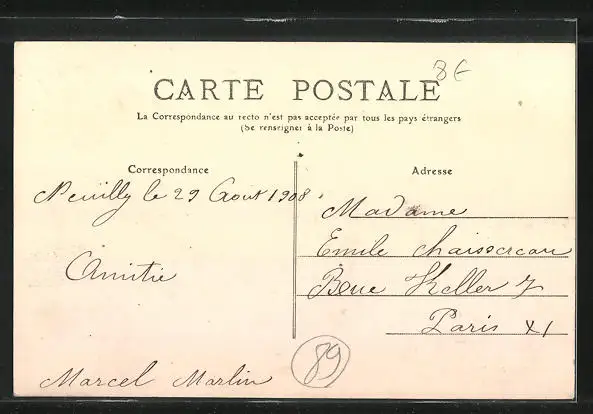 8€
CARTE POSTALE
La Correspondance au recto n'est pas acceptée par tous les pays étrangers
(Se renseigner à la Poste)
Correspondance
Adresse
Neuilly le 29 Aout 1908
Amitié
Marcel Marlin
Madame
Emile Chaissereau
Keller 7
Paris XI
89